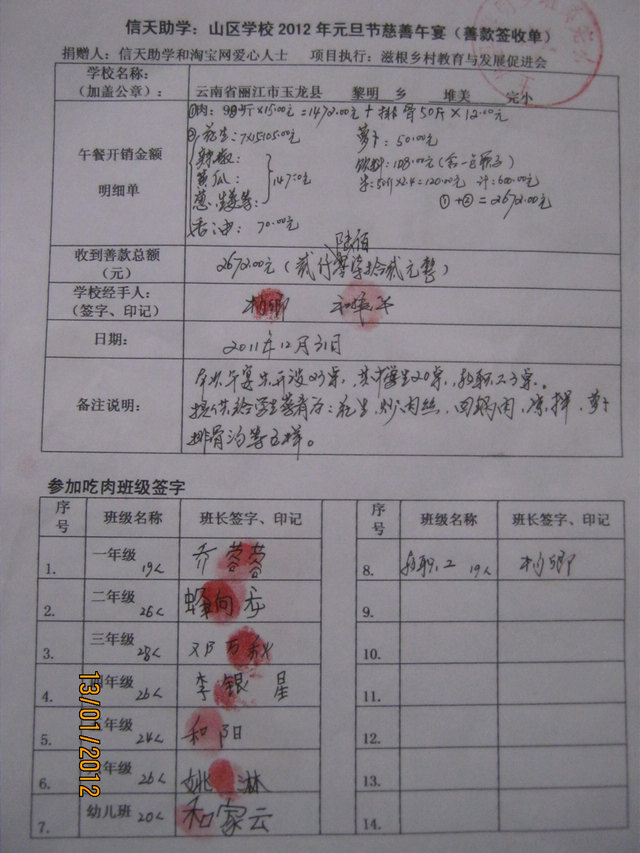 信天助学：山区学校 2012 年元旦节慈善午宴（善款签收单）
捐赠人：信天助学和淘宝网爱心人士 项目执行：滋根乡村教育与发展促进会
学校名称：
（加盖公章）： 云南省丽江市玉龙县 黎明 乡 堆美 完小
午餐开销金额
明细单
①肉: ×15.00元=1472.00元+排骨50斤×12.00元
②花生:7×15=105.00元 萝卜:50.00元
辣椒:
黄瓜: 147.00元
③ 计:600.00元
①+②=2672.00元
香油: 70.00元
收到善款总额
（元） 2672.00元(贰仟陆佰柒拾贰元整)
学校经手人：
（签字、印记）
日期： 2011年12月31日
备注说明：
午宴共开设23桌，其中学生20桌，教职工3桌。
提供给学生菜肴为：花生、炒肉丝、回锅肉、凉拌、萝卜
排骨汤等五样。
参加吃肉班级签字
序号 班级名称 班长签字、印记 序号 班级名称 班长签字、印记
1. 一年级 19人 乔蓉蓉 8. 教职工 19人
2. 二年级 26人 蜂向 9.
3. 三年级 28人 邓万秋 10.
4. 四年级 26人 李银星 11.
5. 年级 24人 和阳 12.
6. 年级 26人 姚淋 13.
7. 幼儿班 20人 和家云 14.
13/01/2012